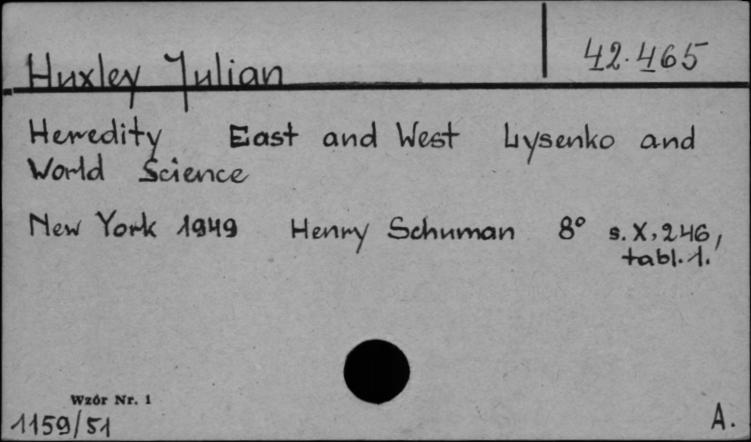 Huxley Julian 42.465
Heredity East and West Lysenko and
World Science
New York 1949 Henry Schuman 8° s. X, 246,
tabl. 1.
Wzór Nr. 1
1159/51 A.